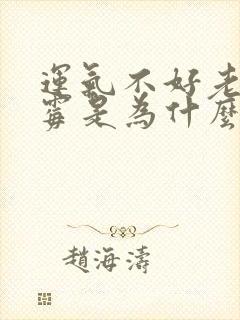 運氣不好老
霉是為什麼
趙海濤